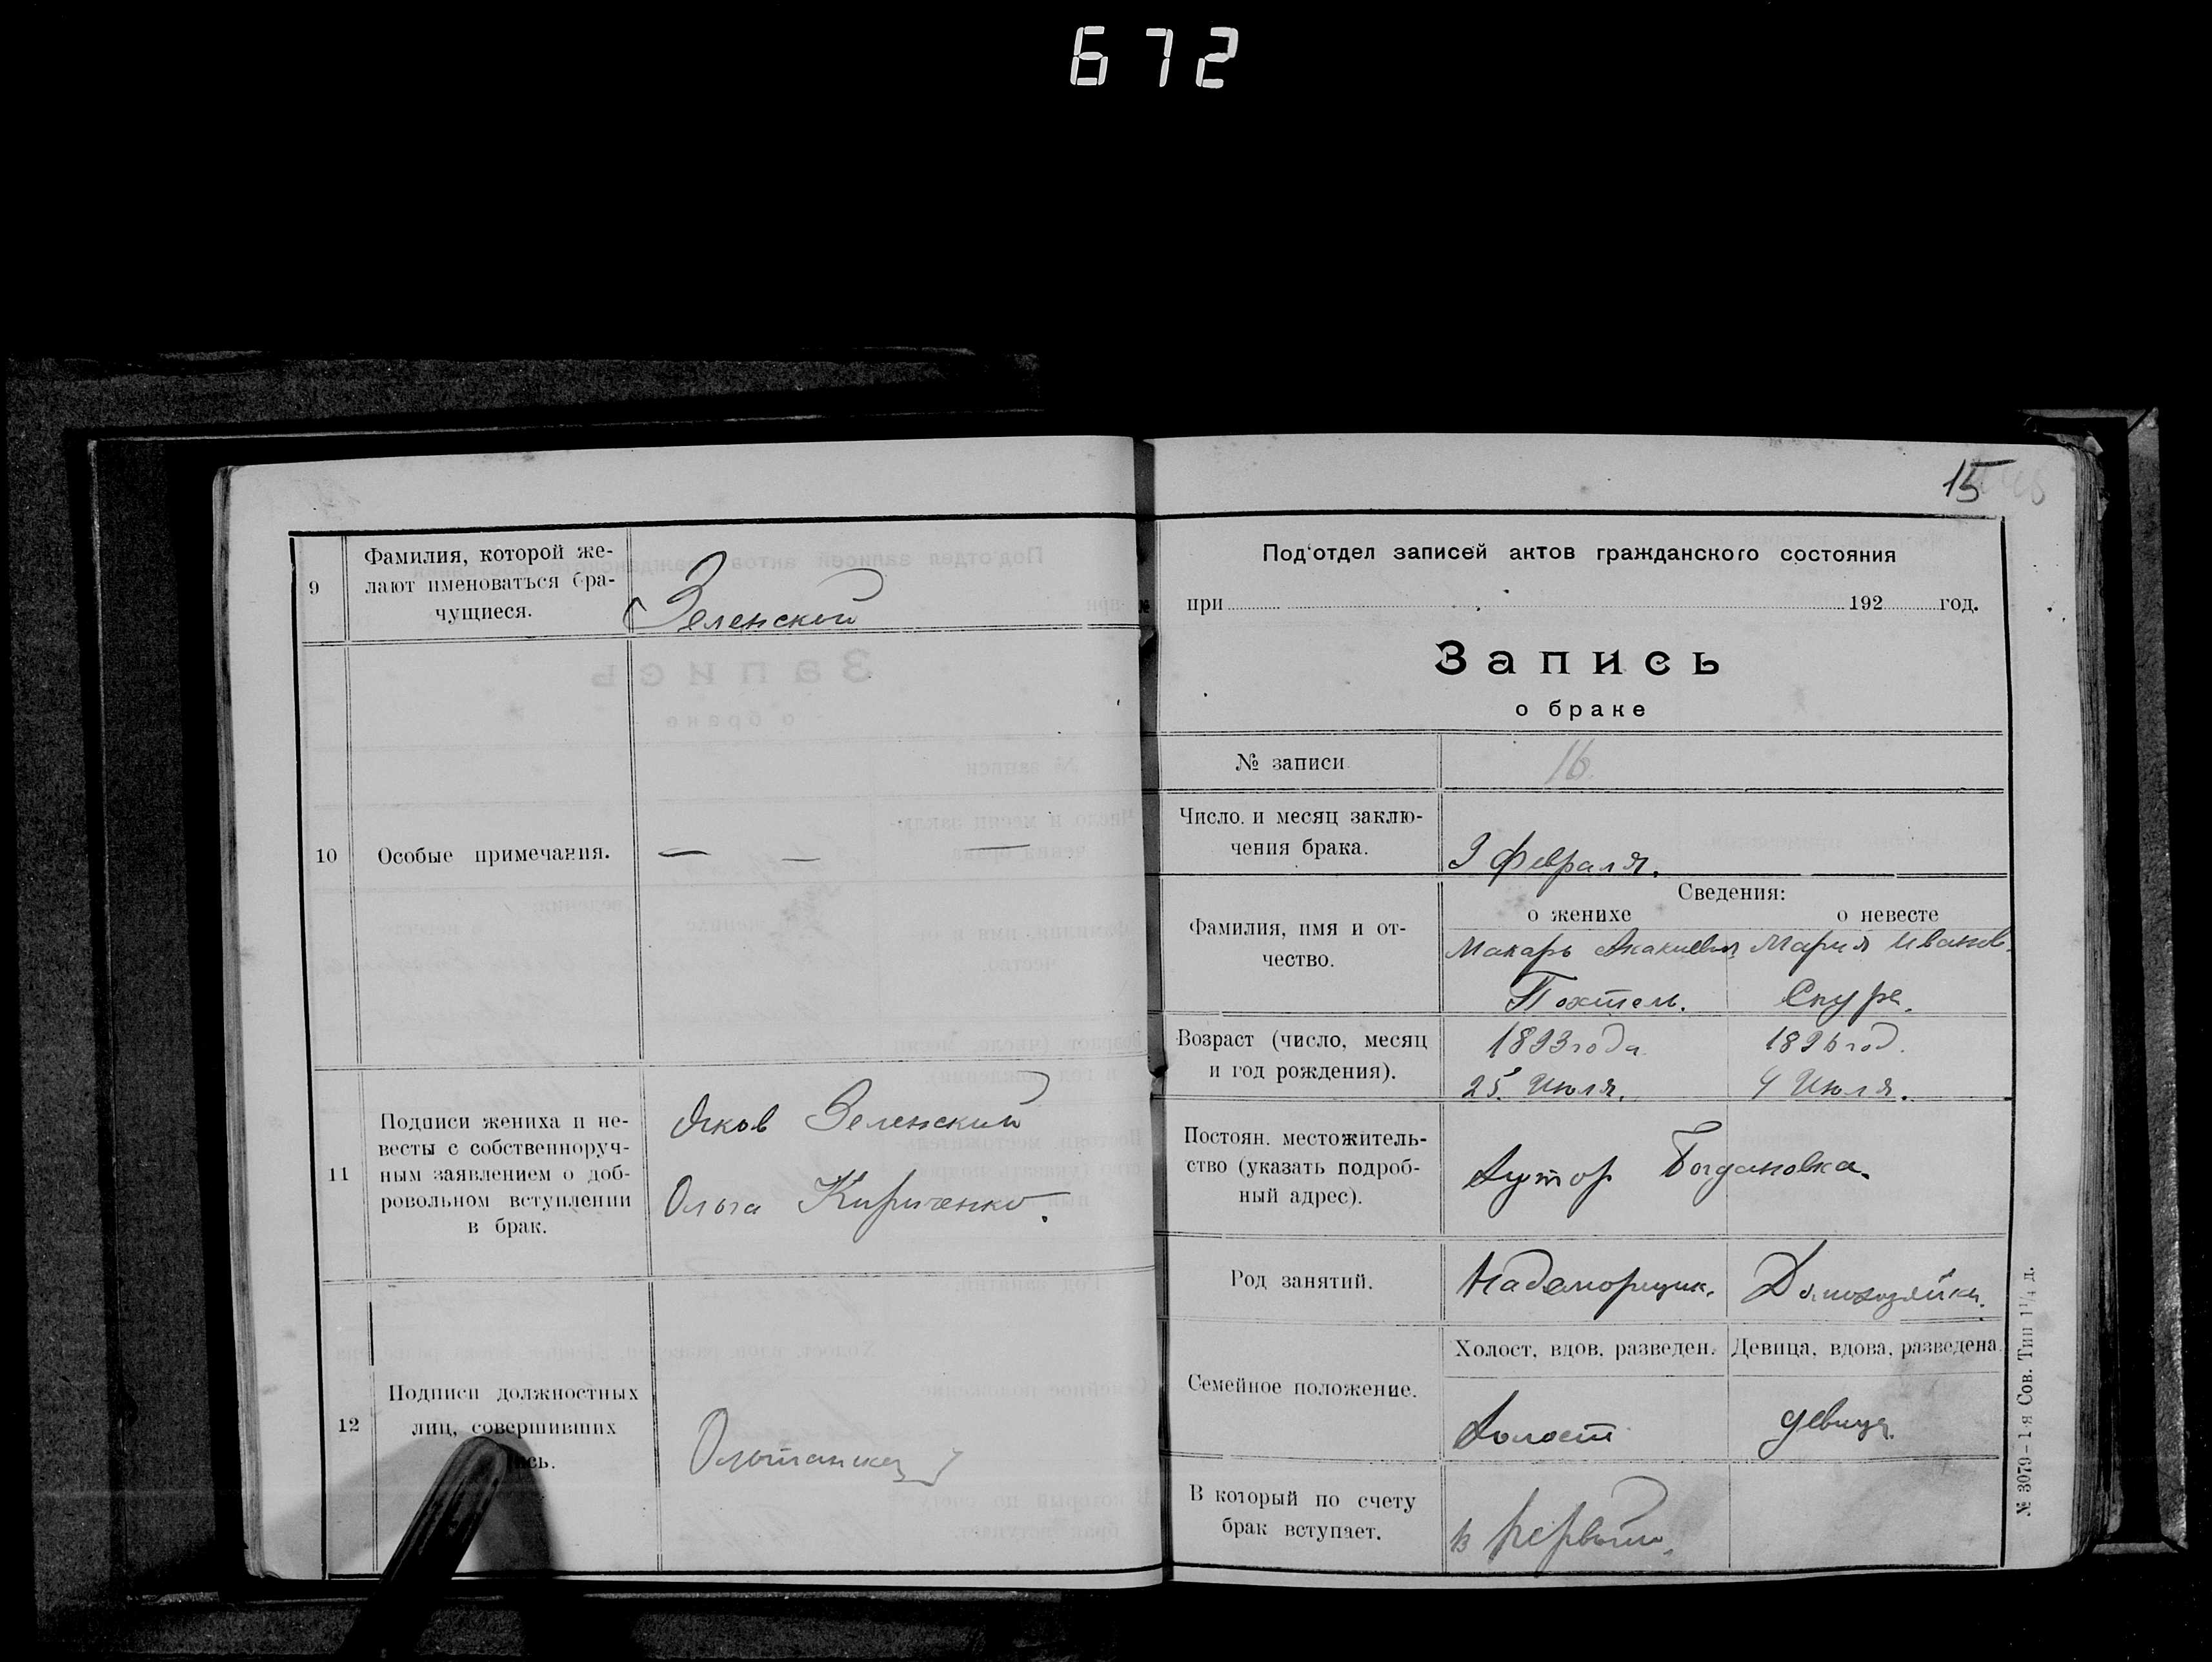 672
9
Фамилия, которой же-
лают именоваться бра-
чущиеся.
Зеленской
10
Особые примечания.
— — —
11
Подписи жениха и не-
весты с собственноруч-
ным заявлением о доб-
ровольном вступлении
в брак.
Яков Зеленский
Ольга Кириченко.
12
Подписи должностных
лиц, совершивших
сь.
15
Под'отдел записей актов гражданского состояния
при 192 год.
Запись
о браке
№ записи
16.
Число. и месяц заклю-
чения брака.
9 Февраля.
Сведения:
о женихе о невесте
Фамилия, имя и от-
чество.
Макарь Акакиевич Мария Иванов.
Возраст (число, месяц
и год рождения).
1893 года 1896 год.
25. Июля. 4 Июля.
Постоян. местожитель-
ство (указать подроб-
ный адрес).
Хутор Богдановка.
Род занятий.
Домохозяйка.
Семейное положение.
Холост, вдов, разведен. Девица, вдова, разведена.
Холост девица.
В который по счету
брак вступает.
в первый.
№ 3079-1-я Сов. Тип 1 1/4 д.